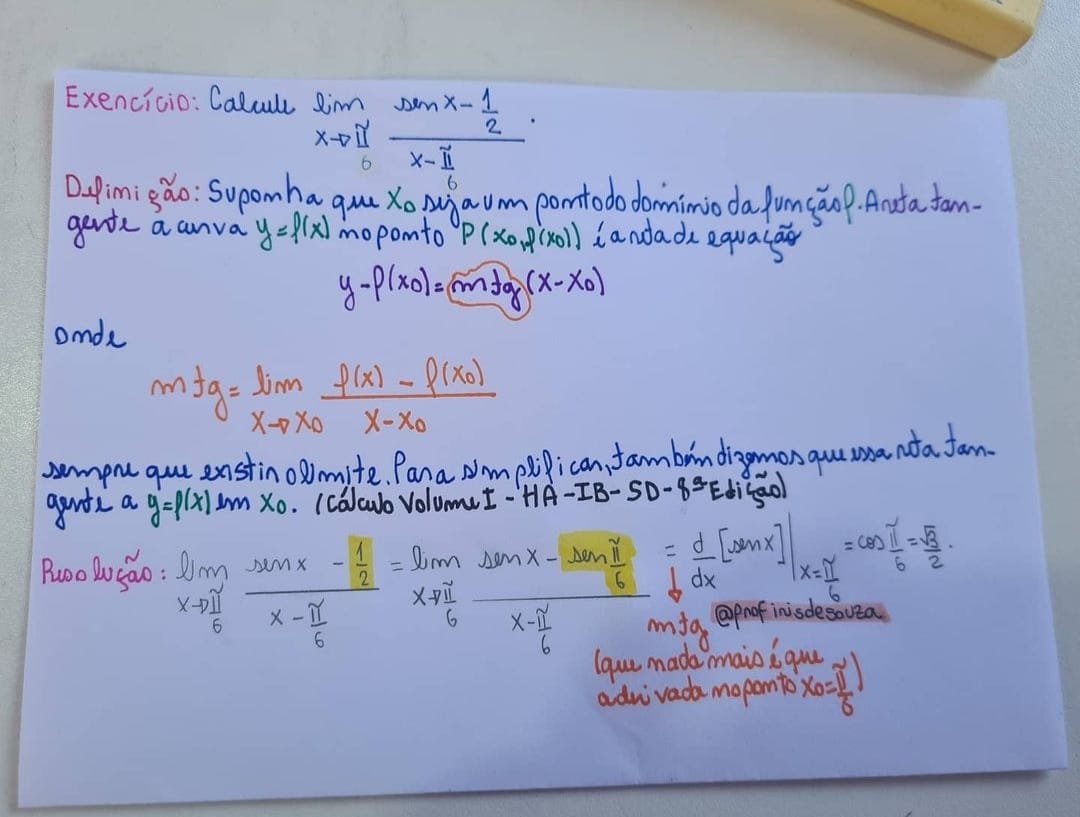 Exercício: Calcule lim x→π/6 (sen x - 1/2)/(x - π/6).
Definição: Suponha que x0 seja um ponto do domínio da função f. A reta tan-
gente a curva y=f(x) no ponto P(x0,f(x0)) é a reta de equação
y-f(x0)=mtg(x-x0)
onde
mtg = lim x→x0 (f(x) - f(x0))/(x-x0)
sempre que existir o limite. Para simplificar, também dizemos que essa reta tan-
gente a y=f(x) em x0. (Cálculo Volume I - HA - IB - SD - 8ª Edição)
Resolução: lim x→π/6 (sen x - 1/2)/(x - π/6) = lim x→π/6 (sen x - sen π/6)/(x - π/6) = d/dx [sen x]|x=π/6 = cos π/6 = √3/2.
↓
mtg @profirisdesouza
(que nada mais é que
a derivada no ponto x0=π/6)